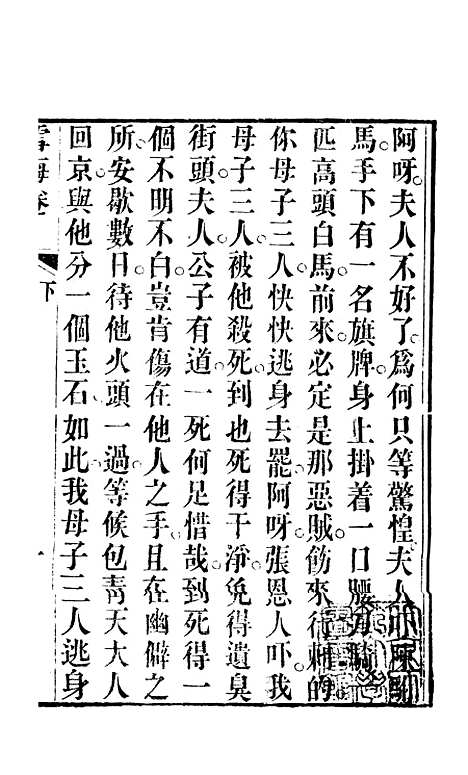 阿呀。夫人不好了。爲何只等驚惶。夫人
馬。手下有一名旗牌。身上掛着一口腰刀。騎
匹高頭白馬前來。必定是那惡賊飭來行刺的。
你母子三人快快逃身去罷。阿呀。張恩人吓。我
母子三人。被他殺死。到也死得干淨。免得遺臭
街頭。夫人。公子有道。一死何足惜哉。到死得一
個不明不白。豈肯傷在他人之手。且在幽僻之
所。安歇數日。待他火頭一過。等候包靑天大人
回京。與他分一個玉石。如此我母子三人逃身
雪梅卷
下
一